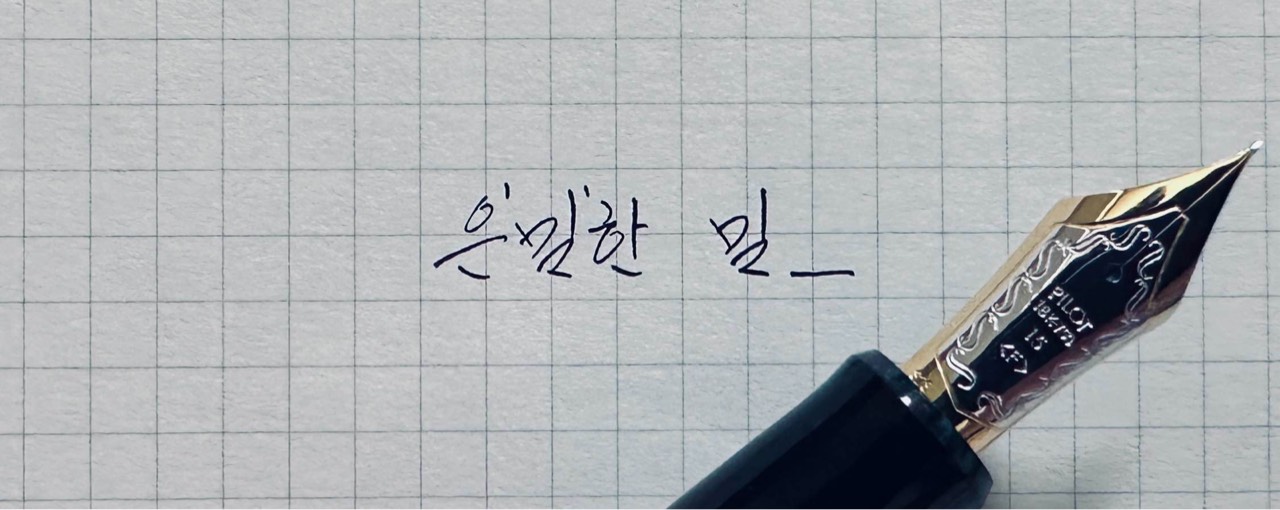 은밀한 밀_
PILOT
18K-750
15